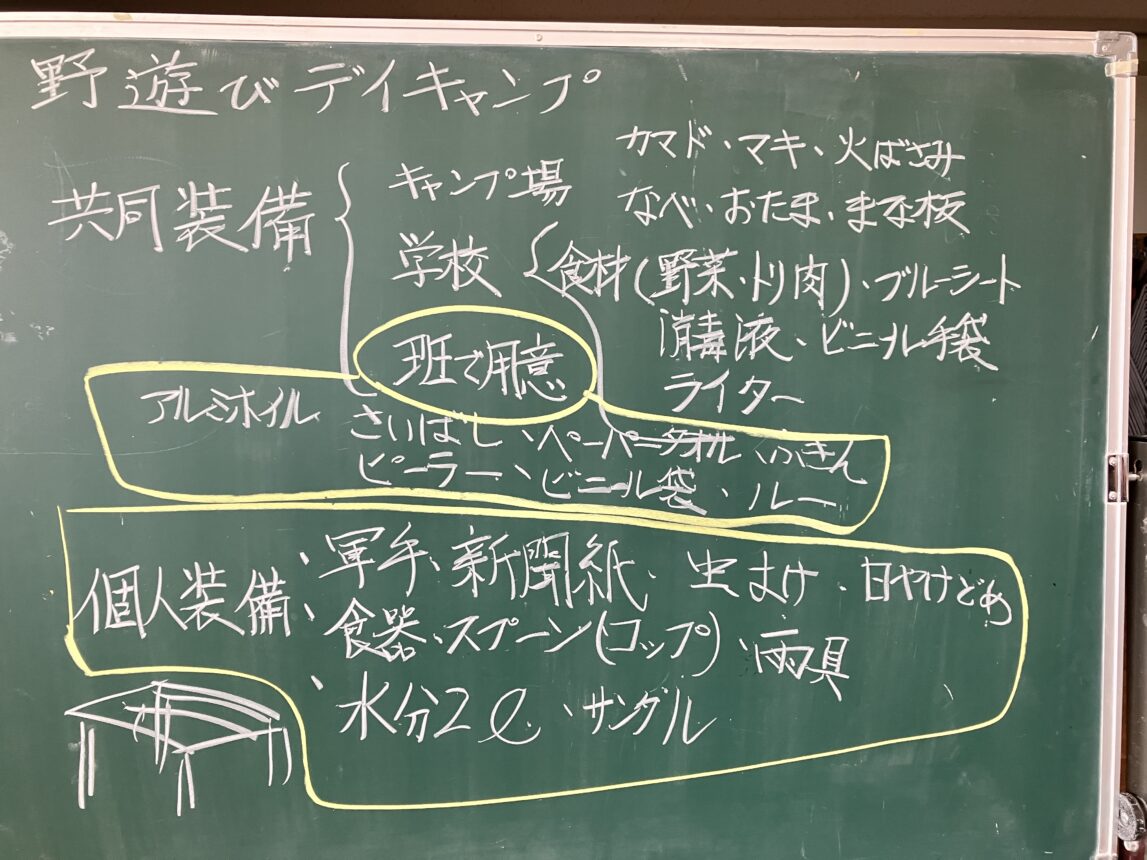 野遊びデイキャンプ
共同装備
キャンプ場
カマド・マキ・火ばさみ
なべ・おたま・まな板
学校
食材(野菜・トリ肉)・ブルーシート
消毒液・ビニル手袋
ライター
班で用意
アルミホイル
さいばし、ペーパータオル、ふきん
ピーラー、ビニール袋、ルー
個人装備
、軍手、新聞紙、虫よけ・日やけどめ
、食器、スプーン(コップ)、雨具
、水分2ℓ、サンダル